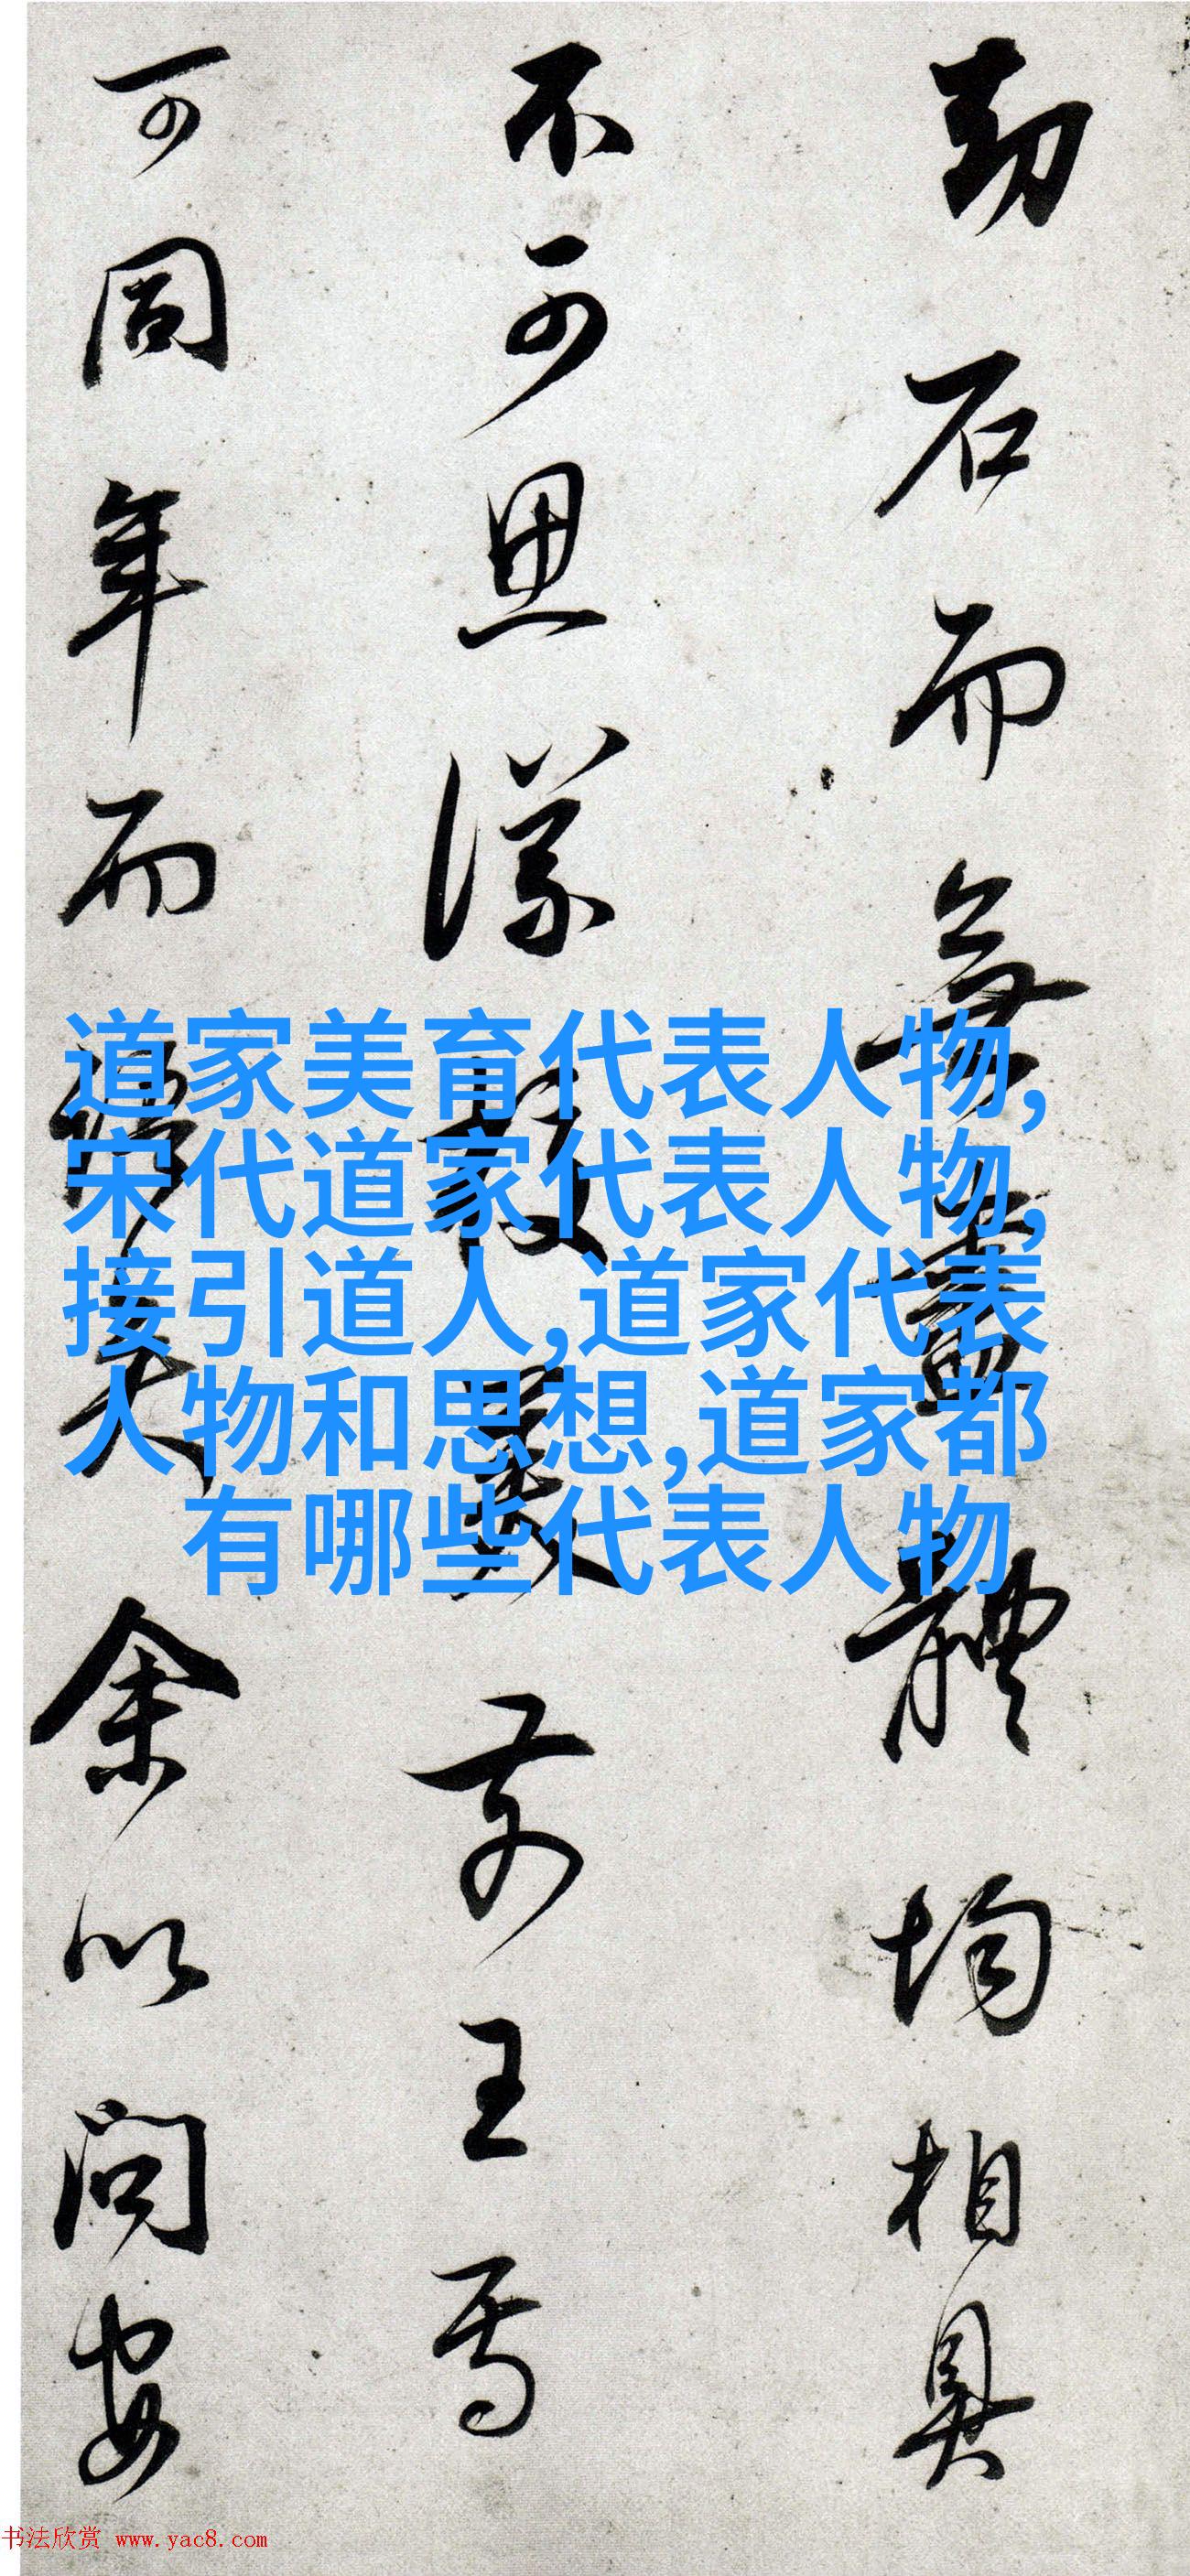 勒石而無書體均相具
不可思議
前王焉
可同年而語矣余以問安
道家美育代表人物,
宋代道家代表人物,
接引道人,道家代表
人物和思想,道家都
有哪些代表人物
书法欣赏 www.yac8.com